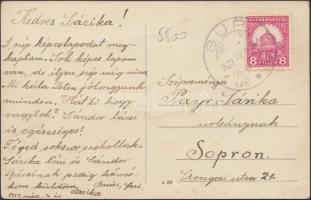 Kedves Sárika!
A szép képeslapodat meg-
kaptam. Sok képes lapom
van, de ilyen szép még nincs.
Mi hála Isten jól vagyunk
mindnen. Hát ti hogy
vagytok? Sándor bácsi
is egészséges?
Téged sokszor csókollak.
Sárika Néni és Sándor
bácsinak pedig kézcsó-
kom küldöm
Sárika
5500
MAGYARORSZÁG
8 8
FILLÉR
Szépreményű
Pazyr Sárika
urleánynak
Sopron.
Csengeri utca 21.